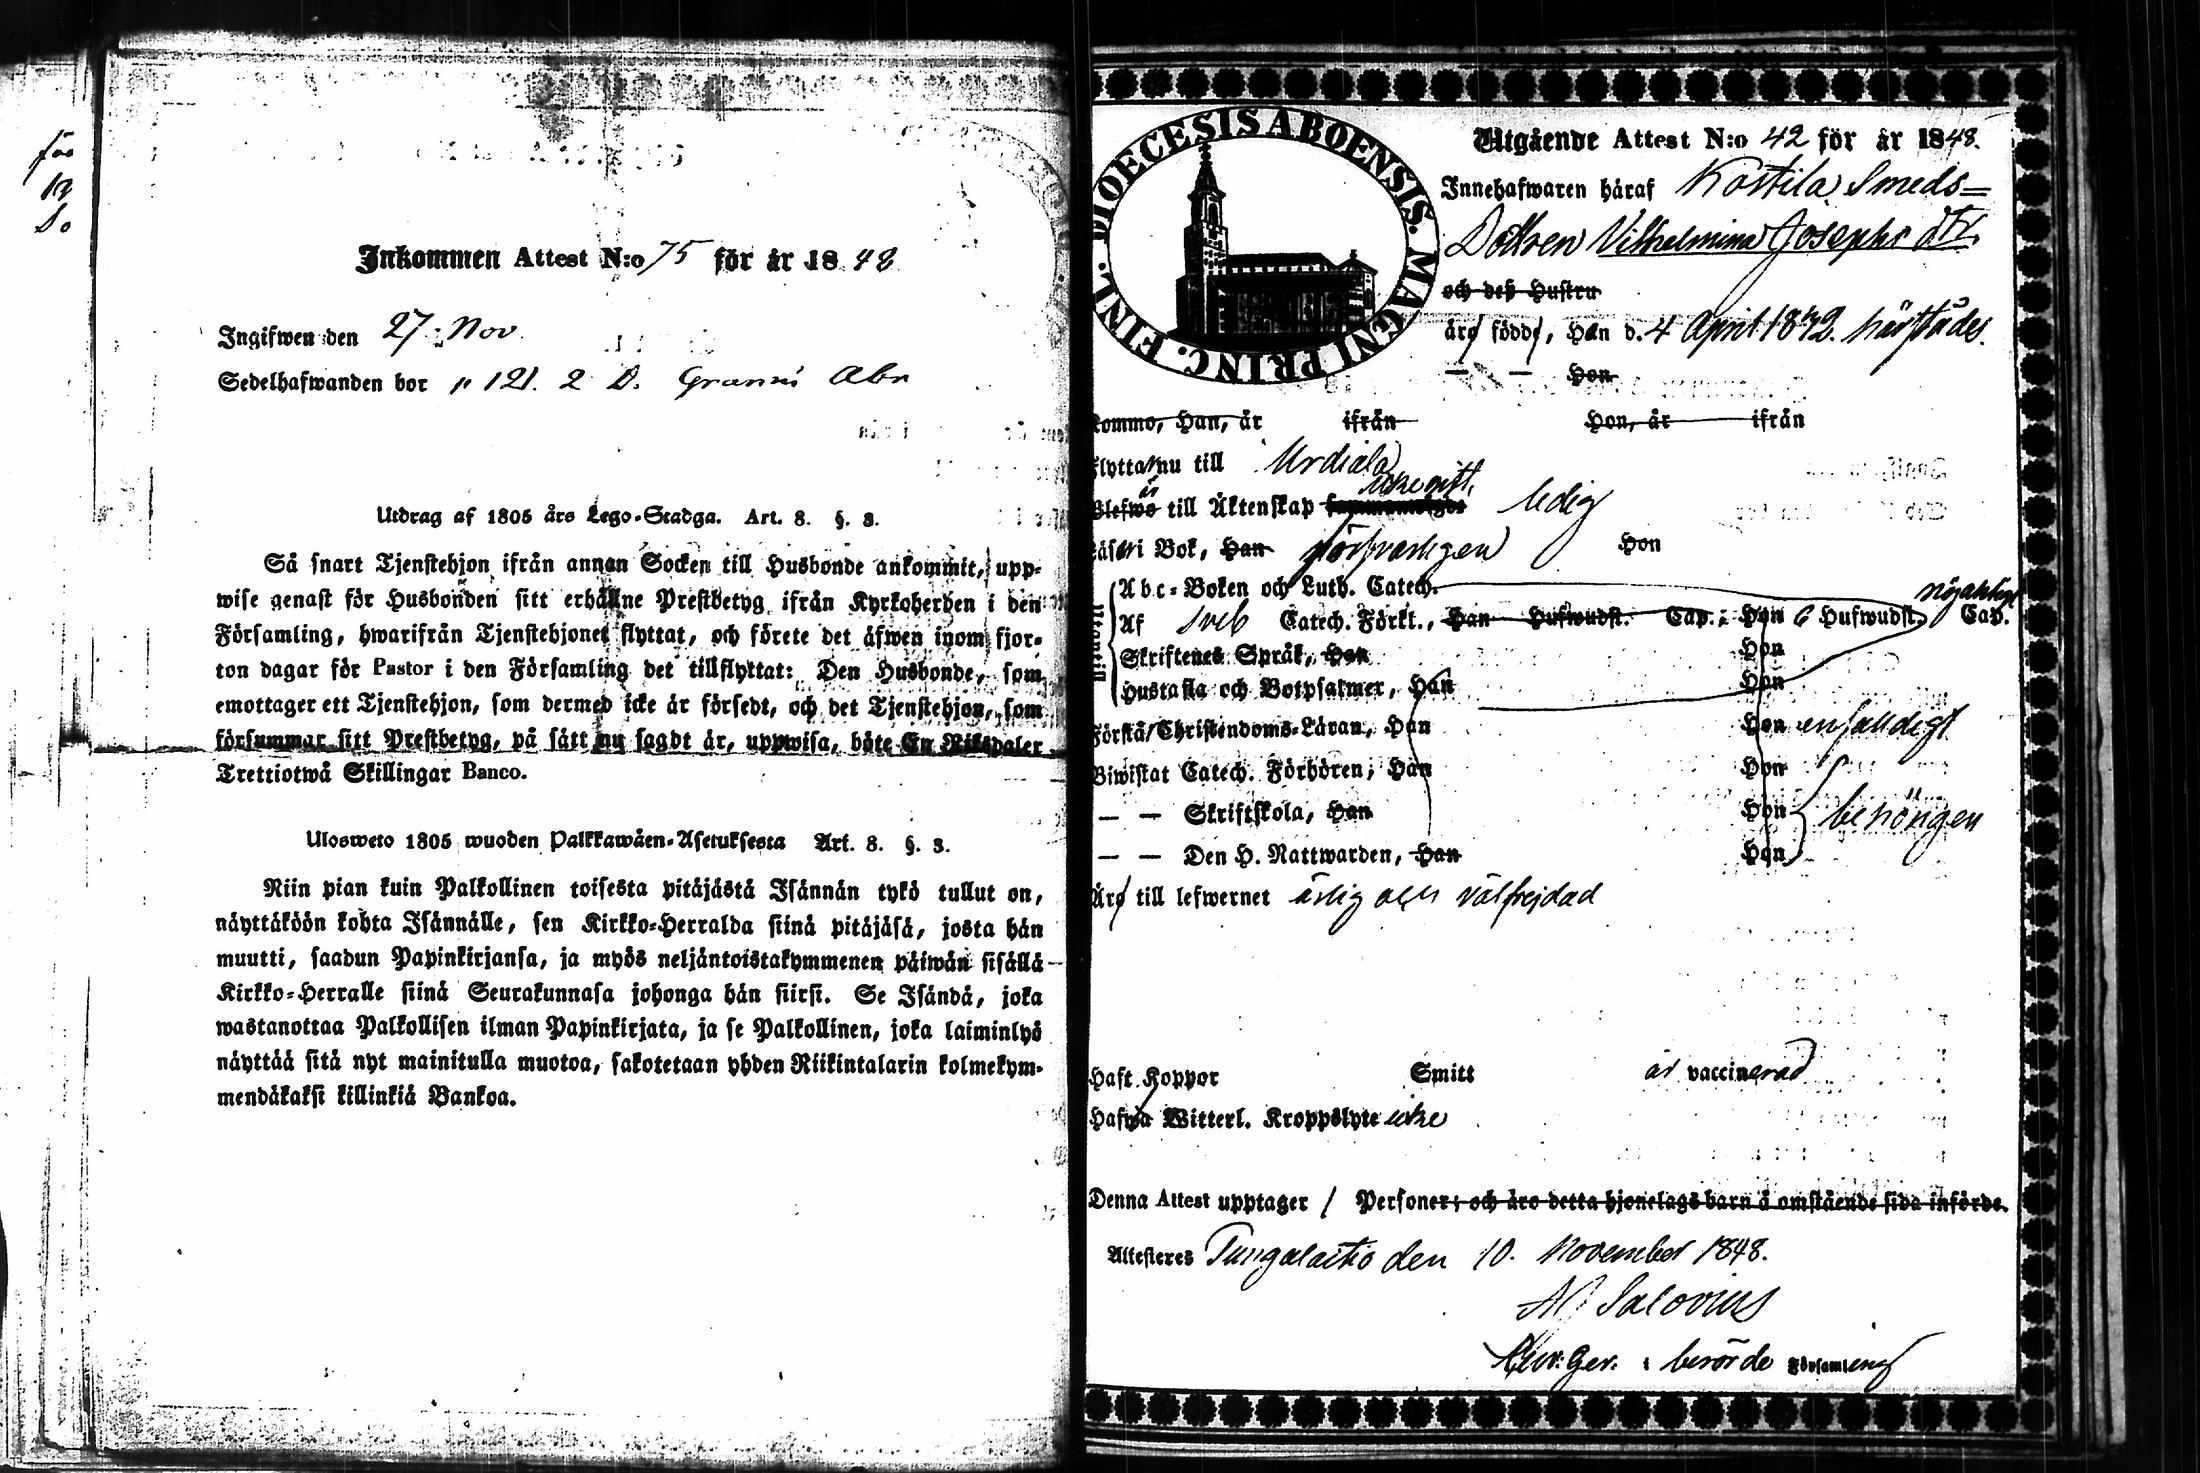 för
Inkommen Attest N:o 75 för år 18 48
Ingifwen den 27 Nov.
Sedelhafwanden bor
Utdrag af 1805 års Lego-Stadga. Art. 8. §. 3.
Så snart Tjenstehjon ifrån annan Socken till Husbonde ankommit, upp-
wise genast för Husbonden sitt erhållne Prestbetyg ifrån Kyrkoherden i den
Församling, hwarifrån Tjenstehjonet flyttat, och förete det äfwen inom fjor-
ton dagar för Pastor i den Församling det tillflyttat: Den Husbonde, som
emottager ett Tjenstehjon, som dermed icke är försedt, och det Tjenstehjon, som
försummar sitt Prestbetyg, på sätt nu sagdt är, uppwisa, böte En Riksdaler
Trettiotwå Skillingar Banco.
Ulosweto 1805 wuoden Palkkawäen-Asetuksesta Art. 8. §. 3.
Niin pian kuin Palkollinen toisesta pitäjästä Isännän tykö tullut on,
näyttäköön kohta Isännälle, sen Kirkko-Herralda siinä pitäjäsä, josta hän
muutti, saadun Papinkirjansa, ja myös neljäntoistakymmenen päiwän sisällä
Kirkko-Herralle siinä Seurakunnasa johonga hän siirsi. Se Isändä, joka
wastanottaa Palkollisen ilman Papinkirjata, ja se Palkollinen, joka laiminlyö
näyttää sitä nyt mainitulla muotoa, sakotetaan yhden Riikintalarin kolmekym-
mendäkaksi killinkiä Bankoa.
DIOECESIS ABOENSIS. MAGNI PRINC. FINL.
Utgående Attest N:o 42 för år 1848.
Innehafwaren häraf Kostila Smeds=
Dottren Vilhelmina Josephs dtr
och deß Hustru
äro födde, Han d. 4 April härstädes.
— — Hon
Kommo, Han, år ifrån Hon, år ifrån
Flytta nu till Urdiala
är icke gift,
Blefwo till Äktenskap ledig
Läsa i Bok, Han försvarligen Hon
Utantill
Abc-Boken och Luth. Catech.
nöjaktigt
Af Sveb Catech. Förkl., Han Hufwudst. Cap.; Hon 6 Hufwudst. Cap.
Skriftenes Språk, Han Hon
Hustafla och Botpsalmer, Han Hon
Förstå Christendoms-Läran, Han Hon enfaldigt
Biwistat Catech. Förhören, Han Hon
— — Skriftskola, Han Hon behörigen
— — Den H. Nattwarden, Han Hon
Äro till lefwernet ärlig och välfrejdad
Haft Koppor Smitt är vaccinerad
Hafwa Witterl. Kroppslyte icke
Denna Attest upptager 1 Personer; och äro detta hjonelags barn å omstående sida införde.
Attesteres Tungalaitio den 10. November 1848.
Salovius
i berörde Församling